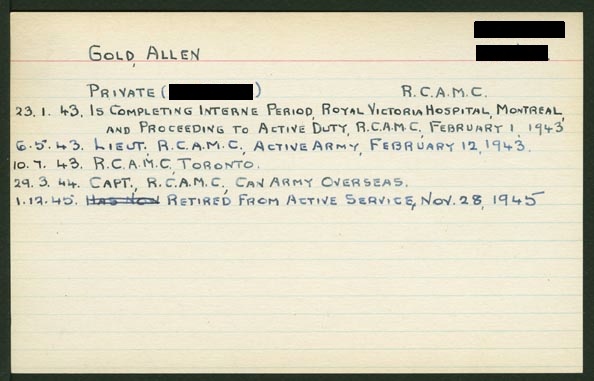 GOLD, ALLEN
PRIVATE ( ) R.C.A.M.C.
23.1.43. IS COMPLETING INTERNE PERIOD, ROYAL VICTORIA HOSPITAL, MONTREAL,
AND PROCEEDING TO ACTIVE DUTY, R.C.A.M.C, FEBRUARY 1, 1943
6.5.43. LIEUT. R.C.A.M.C., ACTIVE ARMY, FEBRUARY 12, 1943.
10.7.43. R.C.A.M.C, TORONTO.
29.3.44. CAPT., R.C.A.M.C., CAN ARMY OVERSEAS.
1.12.45. HAS NOW RETIRED FROM ACTIVE SERVICE, NOV. 28, 1945